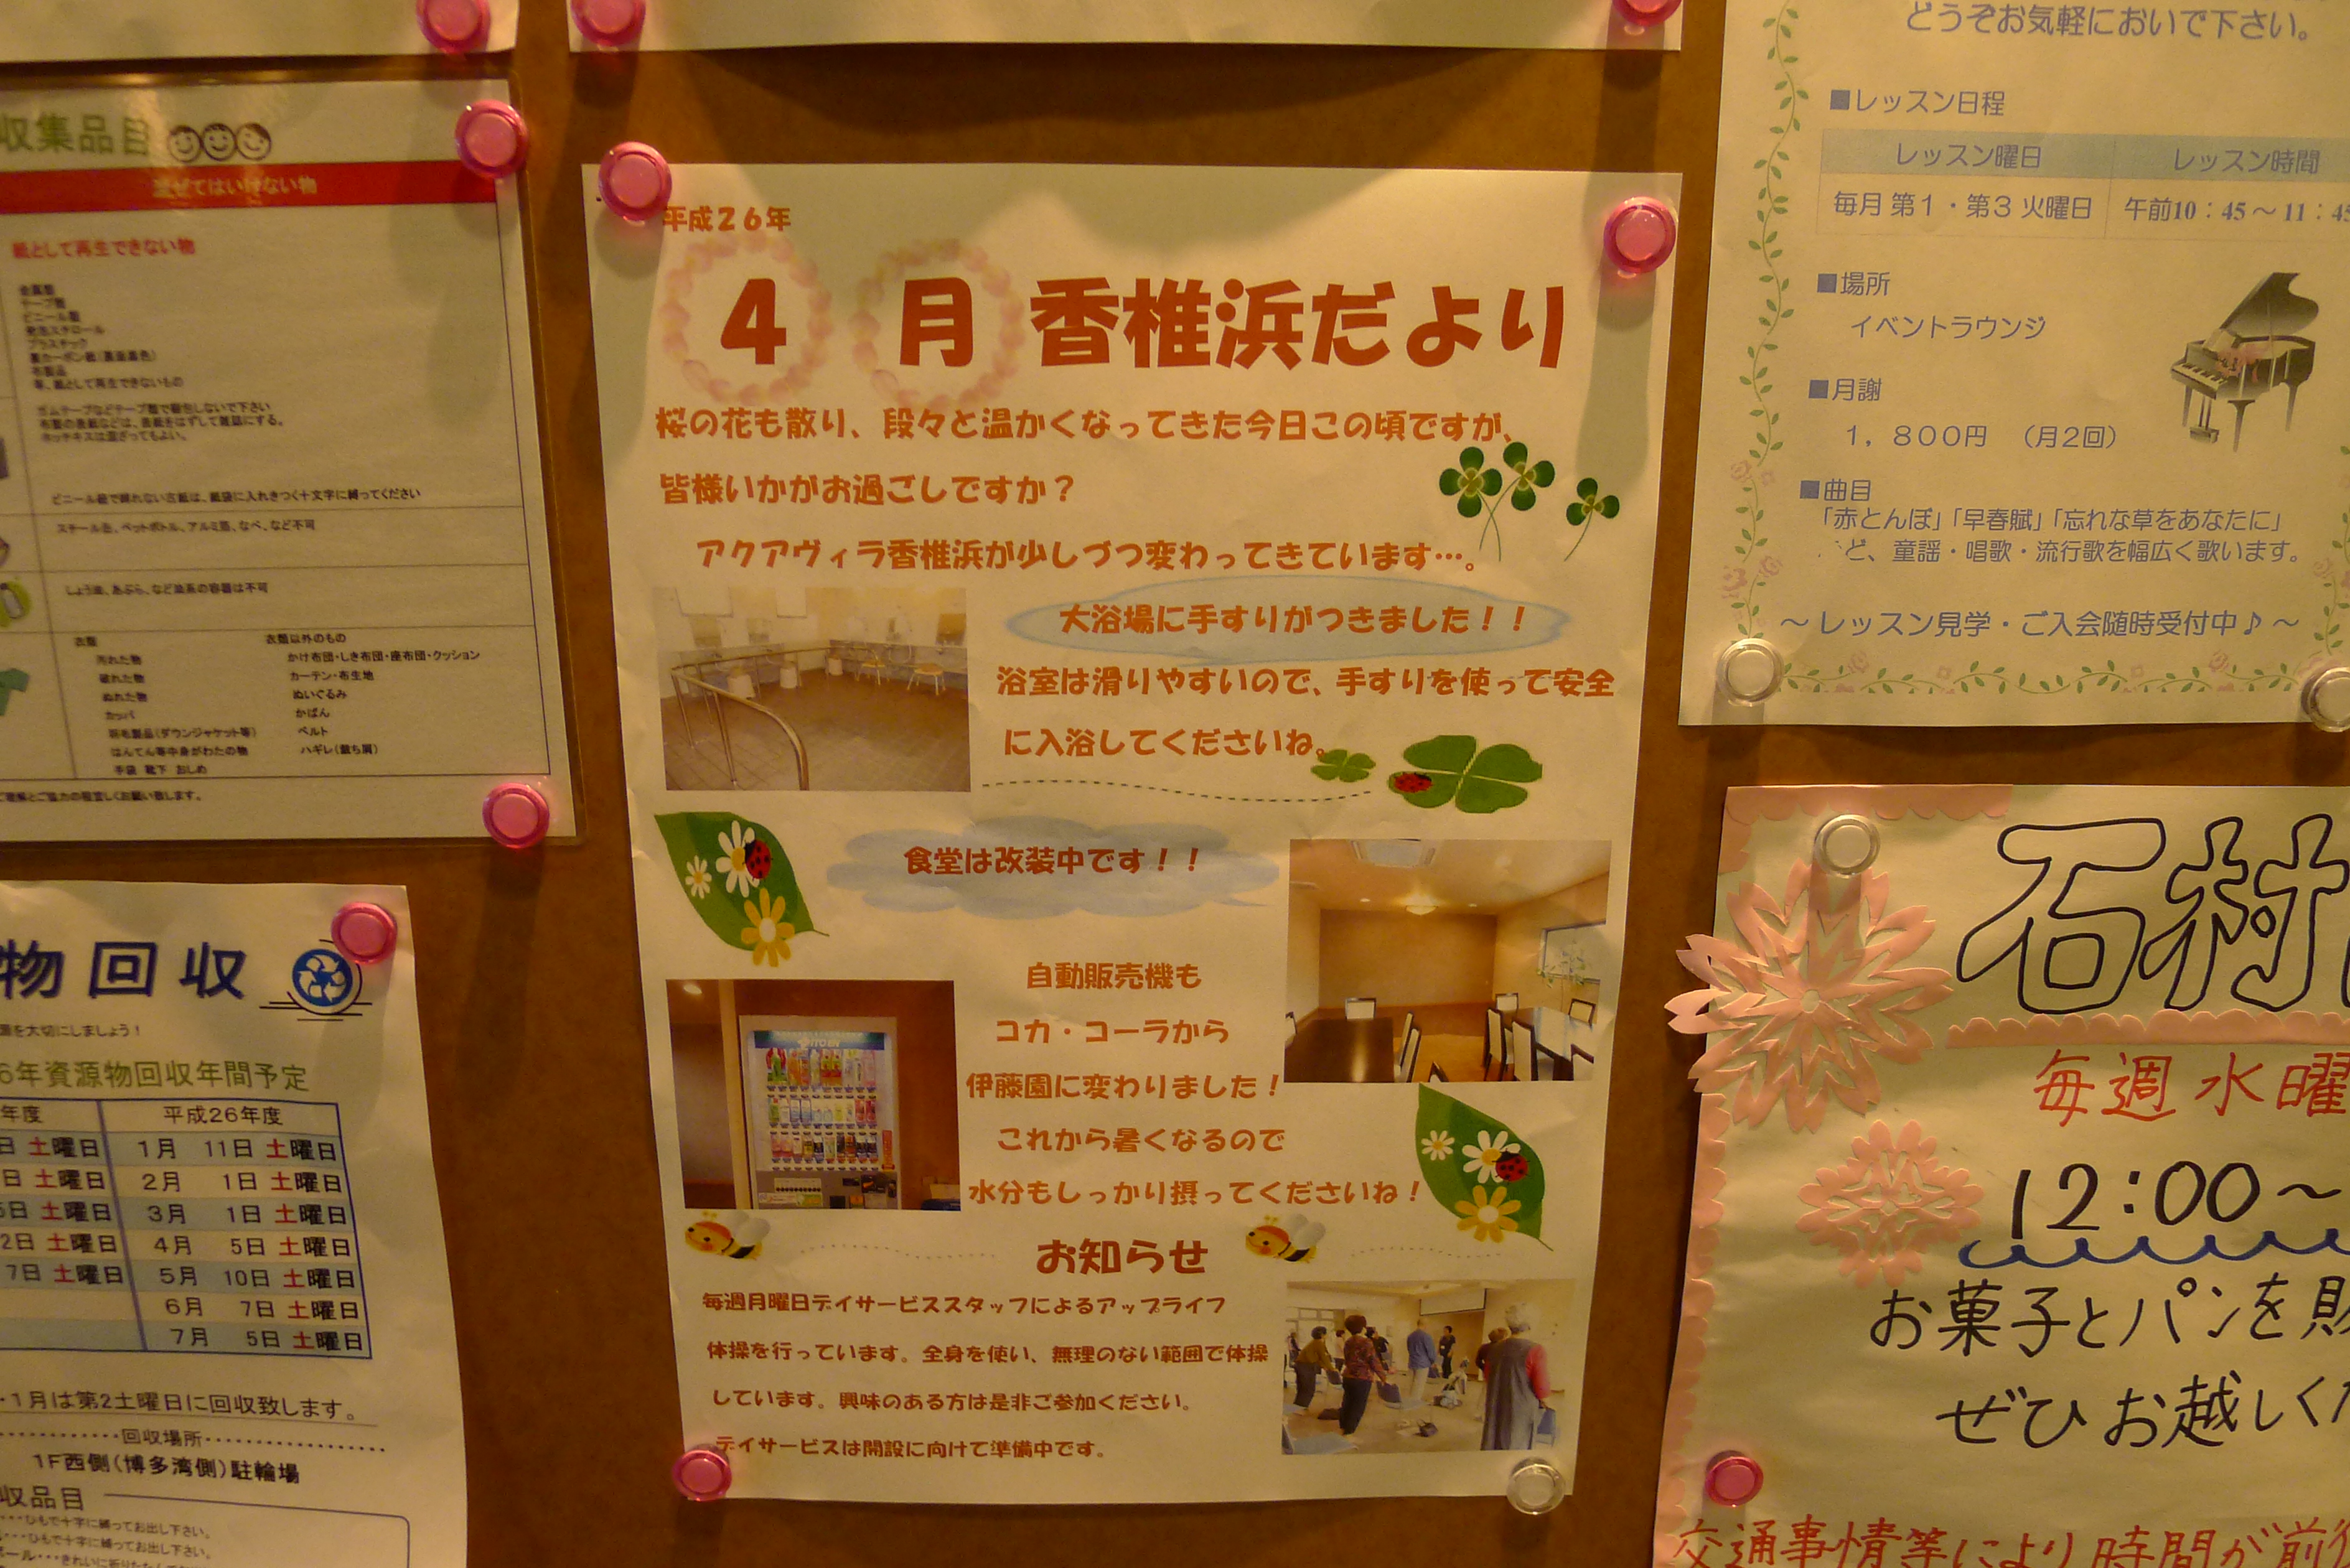 収集品目
混ぜてはいけない物
紙として再生できない物
金属類
テープ類
ビニール類
発泡スチロール
プラスチック
裏カーボン紙(裏面黒色)
布製品
等、紙として再生できないもの
ガムテープなどテープ類で梱包しないで下さい
布製の表紙などは、表紙をはずして雑誌にする。
ホッチキスは混ざってもよい。
ビニール紐で縛れない古紙は、紙袋に入れきつく十文字に縛ってください
スチール缶、ペットボトル、アルミ箔、なべ、など不可
しょう油、あぶら、など油系の容器は不可
衣類 衣類以外のもの
汚れた物 かけ布団・しき布団・座布団・クッション
破れた物 カーテン・布生地
ぬれた物 ぬいぐるみ
カッパ かばん
羽毛製品(ダウンジャケット等) ベルト
はんてん等中身がわたの物 ハギレ(裁ち屑)
手袋 靴下 おしめ
ご理解とご協力の程宜しくお願い致します。
物回収
源を大切にしましょう!
6年資源物回収年間予定
年度 平成26年度
日 土曜日 1月 11日 土曜日
日 土曜日 2月 1日 土曜日
5日 土曜日 3月 1日 土曜日
2日 土曜日 4月 5日 土曜日
7日 土曜日 5月 10日 土曜日
6月 7日 土曜日
7月 5日 土曜日
・1月は第2土曜日に回収致します。
回収場所
1F西側(博多湾側)駐輪場
収品目
・・・ひもで十字に縛ってお出し下さい。
・・・ひもで十字に縛ってお出し下さい。
平成26年
4月 香椎浜だより
桜の花も散り、段々と温かくなってきた今日この頃ですが、
皆様いかがお過ごしですか?
アクアヴィラ香椎浜が少しづつ変わってきています…。
大浴場に手すりがつきました!!
浴室は滑りやすいので、手すりを使って安全
に入浴してくださいね。
食堂は改装中です!!
自動販売機も
コカ・コーラから
伊藤園に変わりました!
これから暑くなるので
水分もしっかり摂ってくださいね!
ITO EN
お知らせ
毎週月曜日デイサービススタッフによるアップライフ
体操を行っています。全身を使い、無理のない範囲で体操
しています。興味のある方は是非ご参加ください。
デイサービスは開設に向けて準備中です。
どうぞお気軽においで下さい。
■レッスン日程
レッスン曜日 レッスン時間
毎月 第1・第3 火曜日 午前10:45～11:45
■場所
イベントラウンジ
■月謝
1,800円 (月2回)
■曲目
「赤とんぼ」「早春賦」「忘れな草をあなたに」
ど、童謡・唱歌・流行歌を幅広く歌います。
～レッスン見学・ご入会随時受付中♪～
石村
毎週水曜
12:00～
お菓子とパンを
ぜひお越しくだ
交通事情等により時間が前後